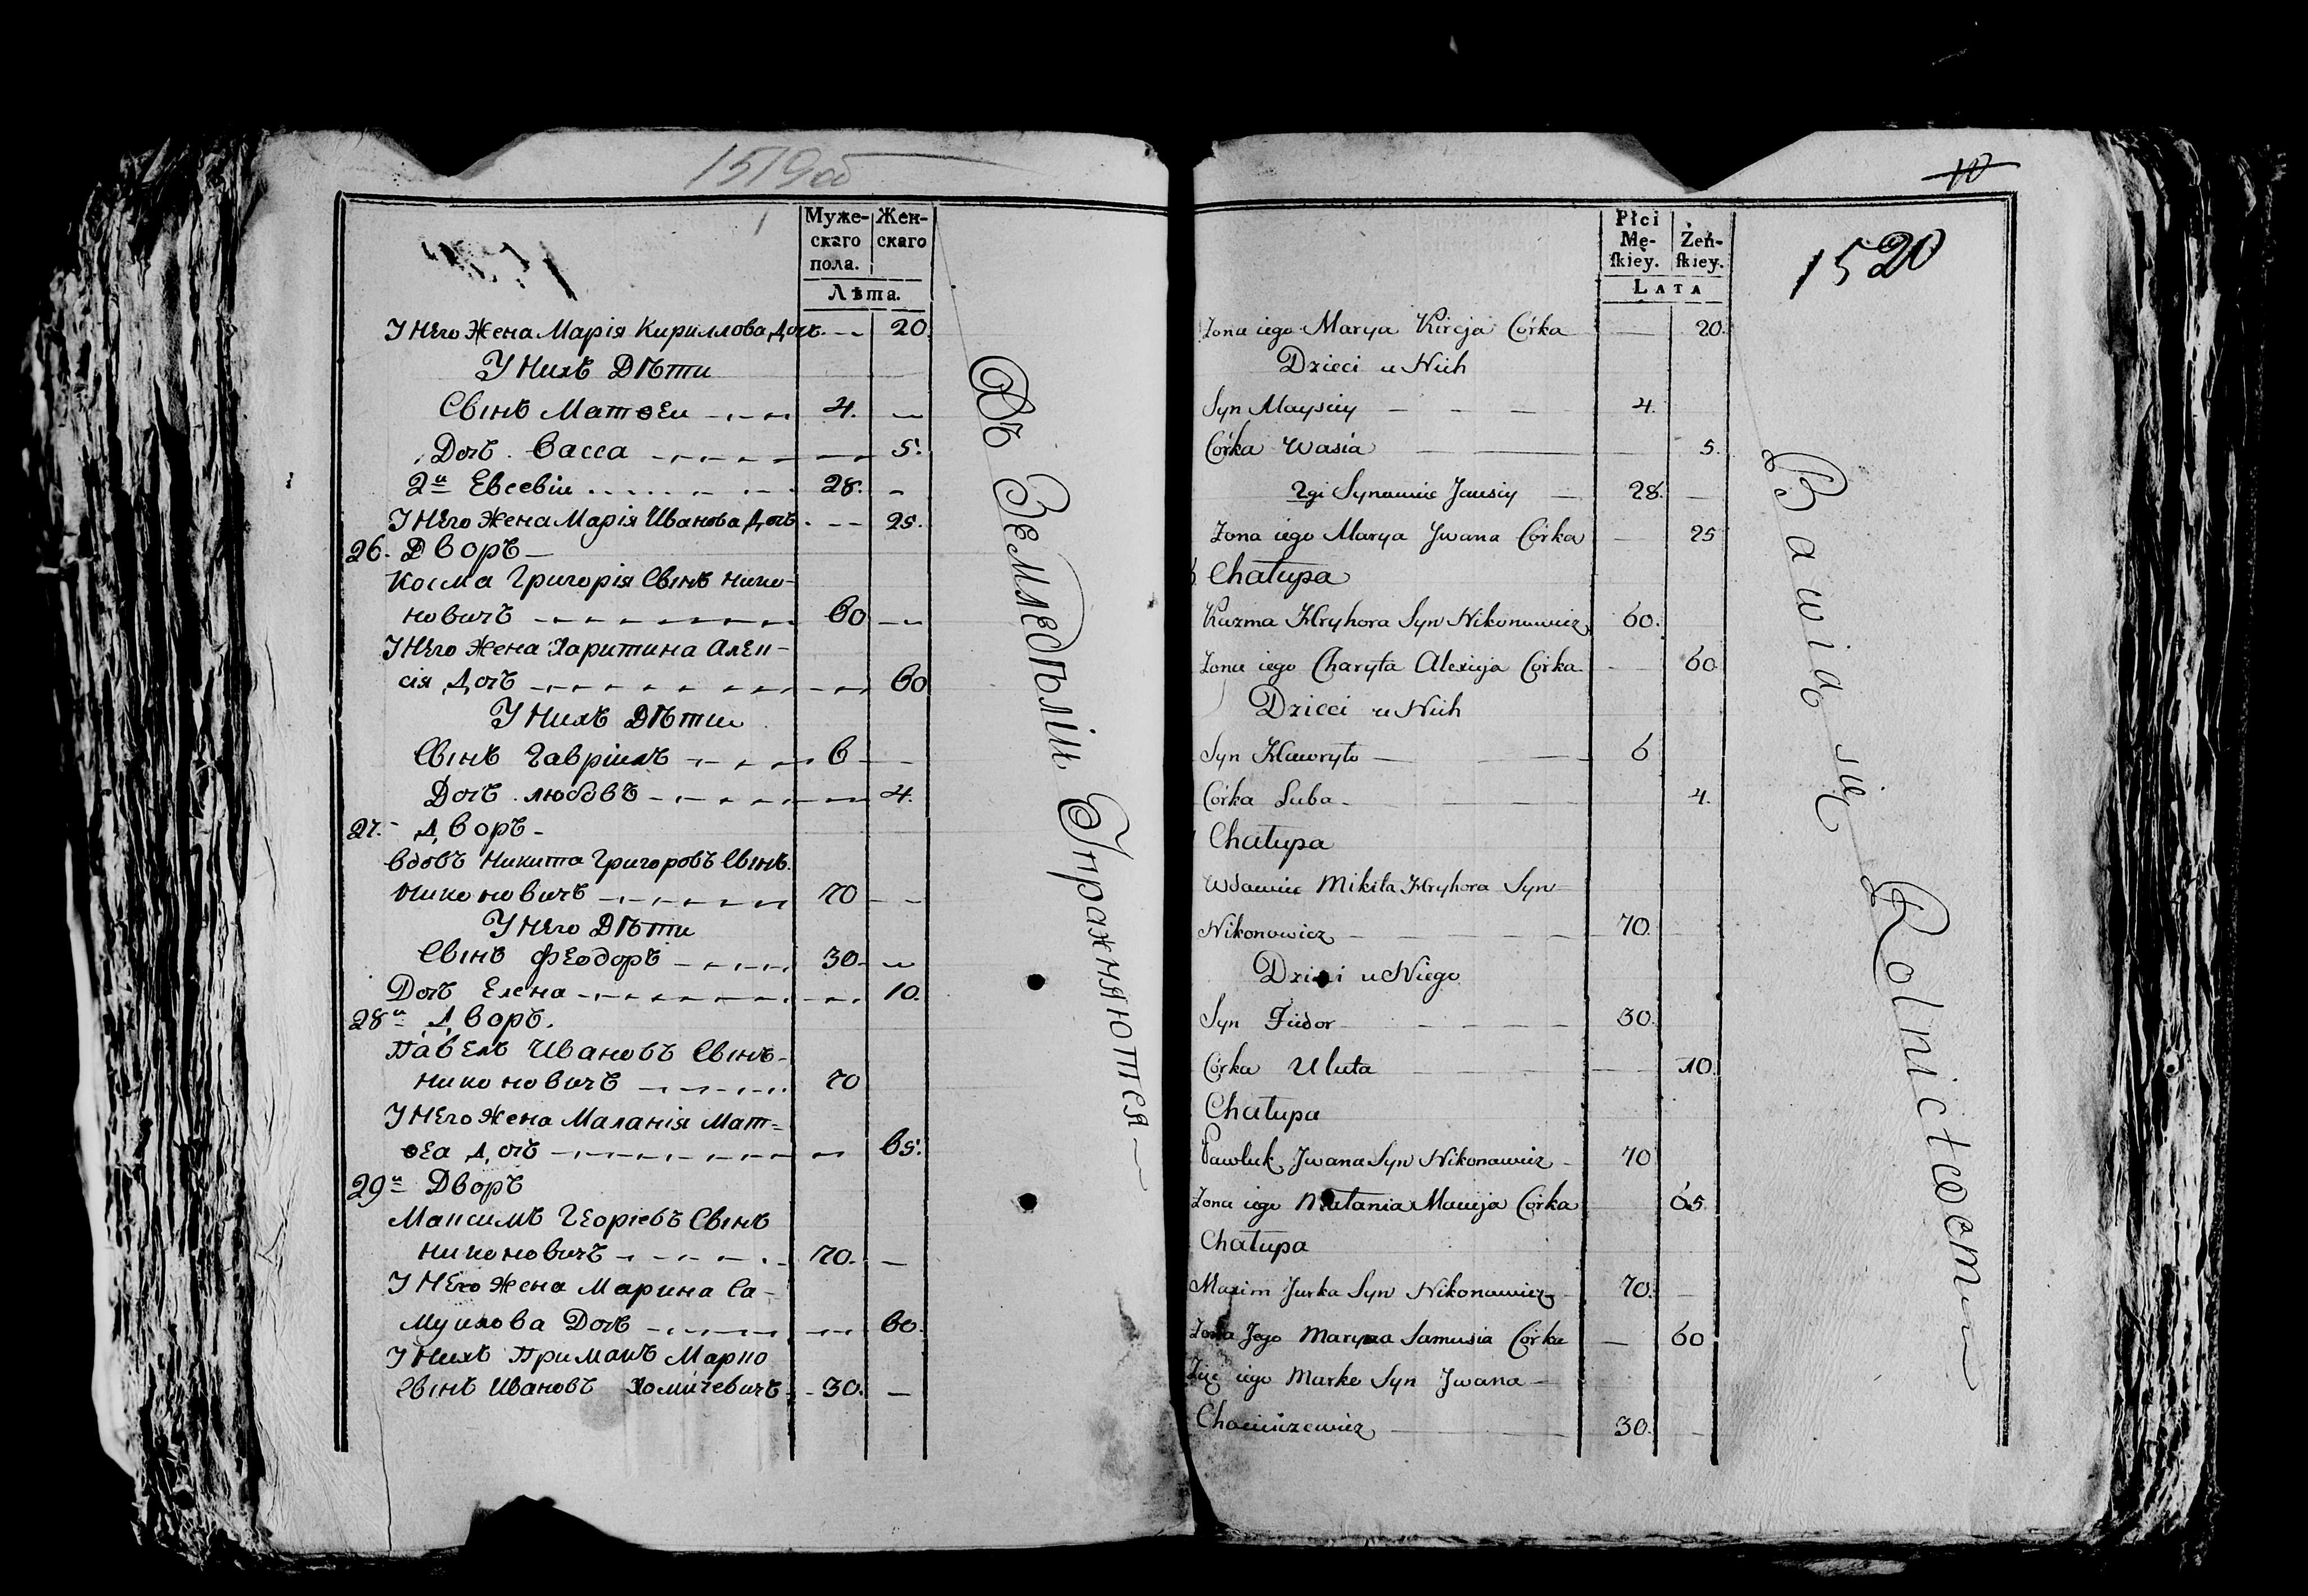 1519об
Муже-
скаго
пола.
Жен-
скаго
Лѣта.
У Него Жена Марія Кириллова Дочь 20.
У Нихъ Дѣти
Сынъ Матѳеи 4.
Дочь Васса 5.
2й Евсевіи 28.
У Него Жена Марія Иванова Дочь 25.
26. Дворъ
Косма Григорія Сынъ Нико-
новичъ 60
У Него Жена Харитина Алек-
сія Дочь 60
У Нихъ Дѣти
Сынъ Гавріилъ 6
Дочь Любовь 4.
27. Дворъ
Вдовъ Никита Григоровъ Сынъ
Никоновичъ 70
У Него Дѣти
Сынъ Феодоръ 30
Дочь Елена 10.
28й Дворъ.
Павелъ Ивановъ Сынъ
Никоновичъ 70
У Него Жена Маланія Мат-
ѳеа Дочь 65.
29й Дворъ
Максимъ Георгіевъ Сынъ
Никоновичъ 70.
У Него Жена Марина Са-
муилова Дочь 60.
У Нихъ Примакъ Марко
Сынъ Ивановъ Хомичевичъ 30.
Въ Земледѣліи Упражняются
10
1520
Płci
Mę-
ſkiey.
Żeń-
ſkiey.
Lata
Żona iego Marya Kireja Córka 20.
Dzieci u Nich
Syn Maysiey 4.
Córka Wasia 5.
2gi Synowiec Jausiy 28.
Żona iego Marya Jwana Córka 25
Chałupa
Kuzma Hryhora Syn Nikonowicz 60.
Żona iego Charyta Alexieja Córka 60
Dzieci u Nich
Syn Hawryło 6
Córka Luba 4.
Chałupa
Wdowiec Mikita Hryhora Syn
Nikonowicz 70.
Dzieci u Niego
Syn Fiedor 30.
Córka Uluta 10.
Chałupa
Pawluk Jwana Syn Nikonowicz 70
Żona iego Małania Macieja Córka 65
Chałupa
Maxim Jurka Syn Nikonowicz 70.
Żona Jego Maryna Samusia Córka 60
Zięć iego Marko Syn Jwana
Chomiczewicz 30.
Bawią się Rolnictwem